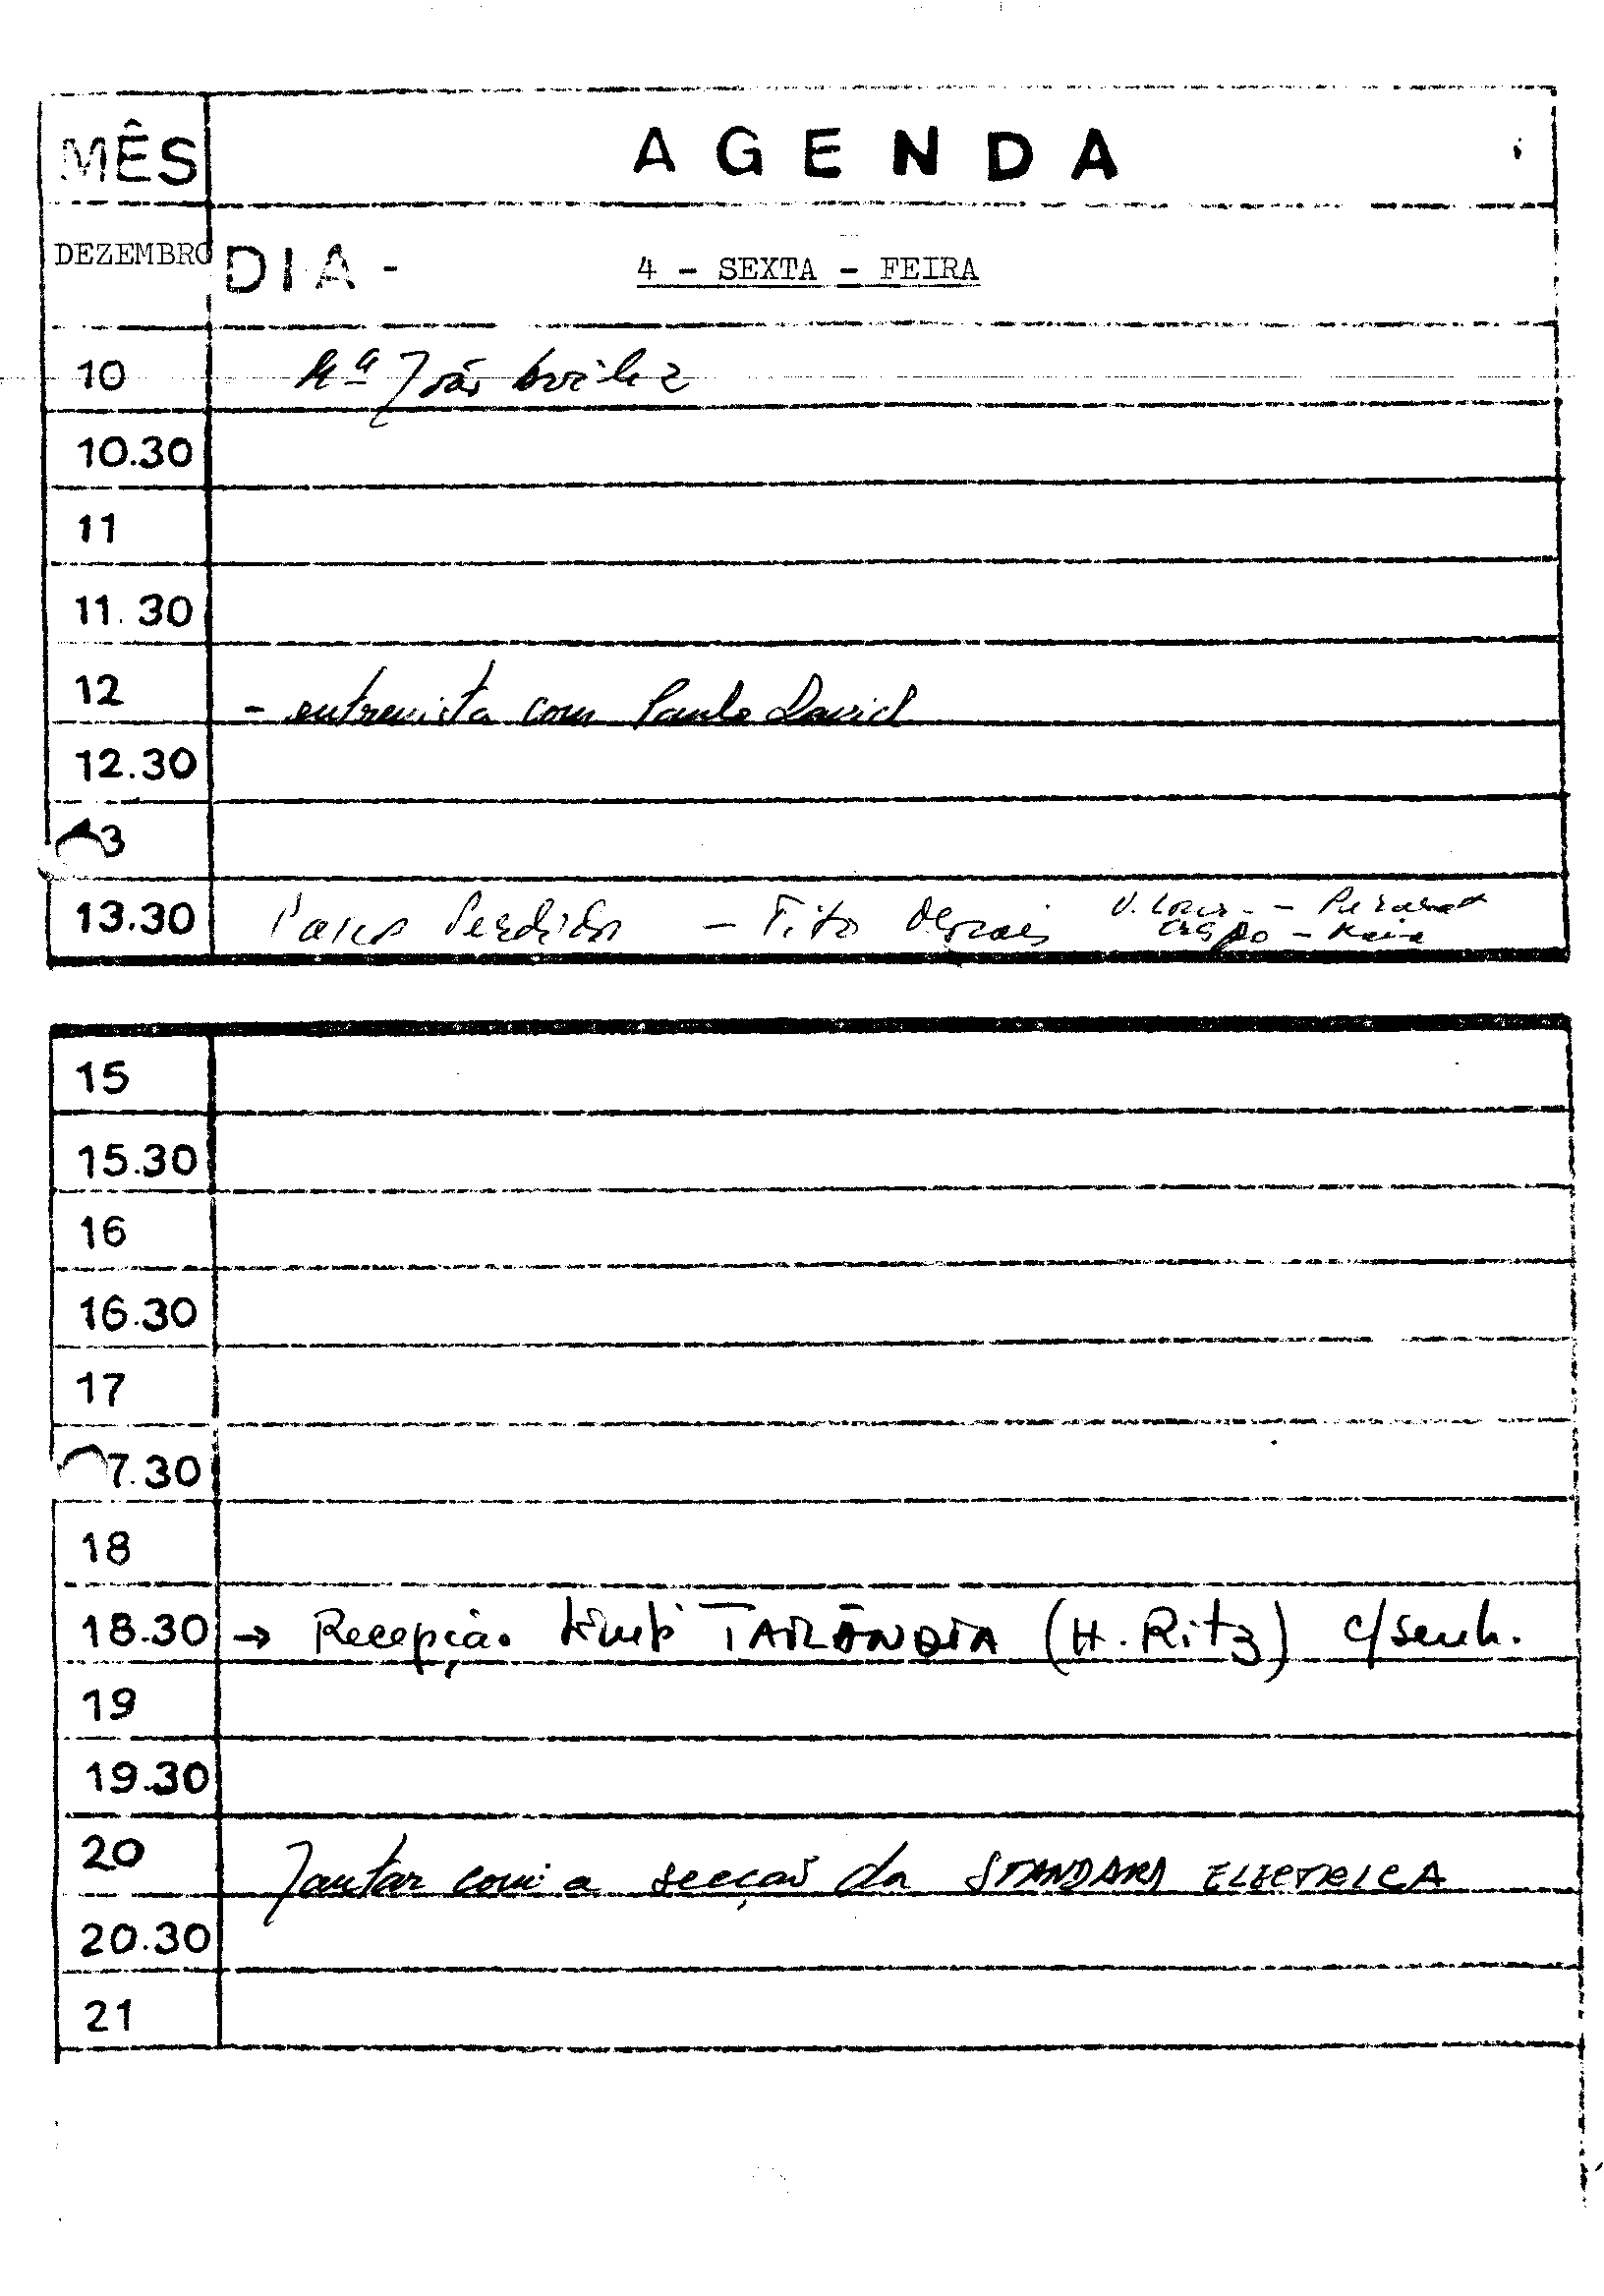 MÊS AGENDA
DEZEMBRO DIA - 4 - SEXTA - FEIRA
10 Mª João Avilez
10.30
11
11.30
12 - entrevista com Paulo David
12.30
3
13.30 Passos Perdidos - Tito Morais
15
15.30
16
16.30
17
7.30
18
18.30 → Recepção TAILÂNDIA (H. Ritz) c/senh.
19
19.30
20 Jantar com a secção da STANDARD ELECTRICA
20.30
21